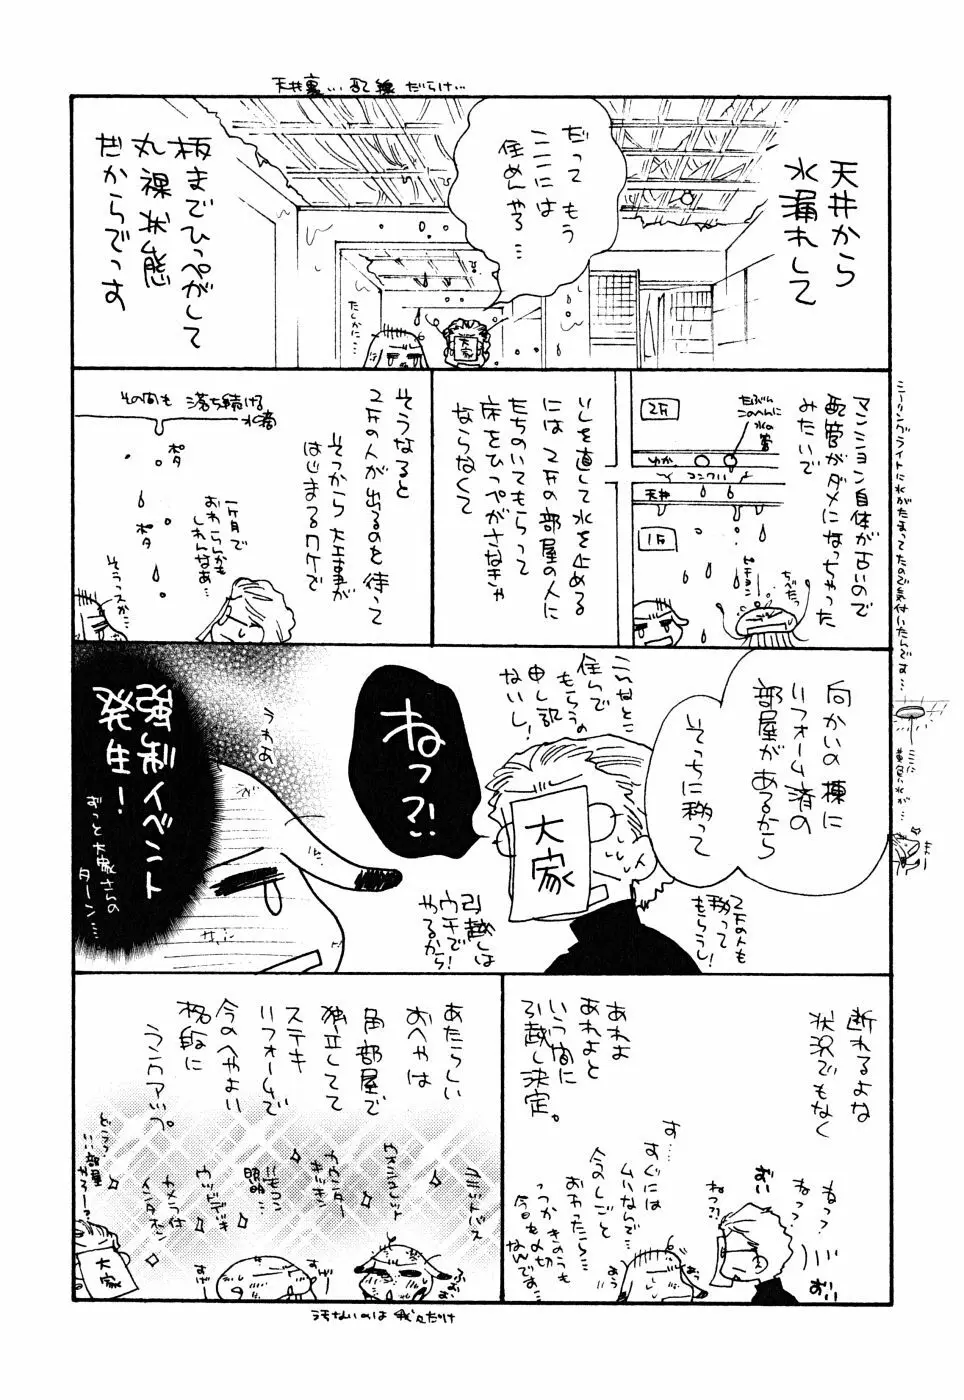 天井裏…配線だらけ…
天井から
水漏れして
だって もう
ここには
住めんやろ…
たしかに…
大家
板までひっぺがして
丸裸状態
だからでっす
マンション自体が古いので
配管がダメになっちゃった
みたいで
2F
たぶん
このへんに
水の管
ゆか
コンクリ
天井
1F
ピチョン
ちべたっ
シーリングライトに水がたまってたので気付いたんです…
ここに
黄色い水が…
いしを直して水を止める
には 2Fの部屋の人に
たちのいてもらって
床をひっぺがさなきゃ
ならなくて
そうなると
2Fの人が出るのを待って
そっから大工事が
はじまるワケで
その間も 落ち続ける
水滴
ポタ
ポタ
一ヶ月で
おわらんかも
しれんなあ…
そうっスか…
向かいの棟に
リフォーム済の
部屋があるから
そっちに移って
こんなとこ
住んで
もらうの
申し訳
ないし!
ねっ?!
大家
2Fの人も
移って
もらうし!
引越しは
ウチで
やるから!
うわぁ
強制イベント
発生!
ずっと大家さんの
ターン…
断れるよな
状況でもなく
あれよ
あれよと
いう間に
引越し決定。
ねっ?
ねっ?
おい
ねっ?!
おい
す……
すぐには
ムリなんで…
今のしごと
おわったら…
っつかきのうも
今日も〆切
なんです…
おう
あたらしい
おへやは
角部屋で
独立してて
ステキ
リフォームで
今のへやよい
格段に
ランクアップ。
ウォシュレット
カウンター
キッチン
リモコン
照明
ウッドデッキ
カメラ付
インタホン
どうっ?
…部屋
やろー?
大家
すげー
うおお
汚ないのは 我々だけ